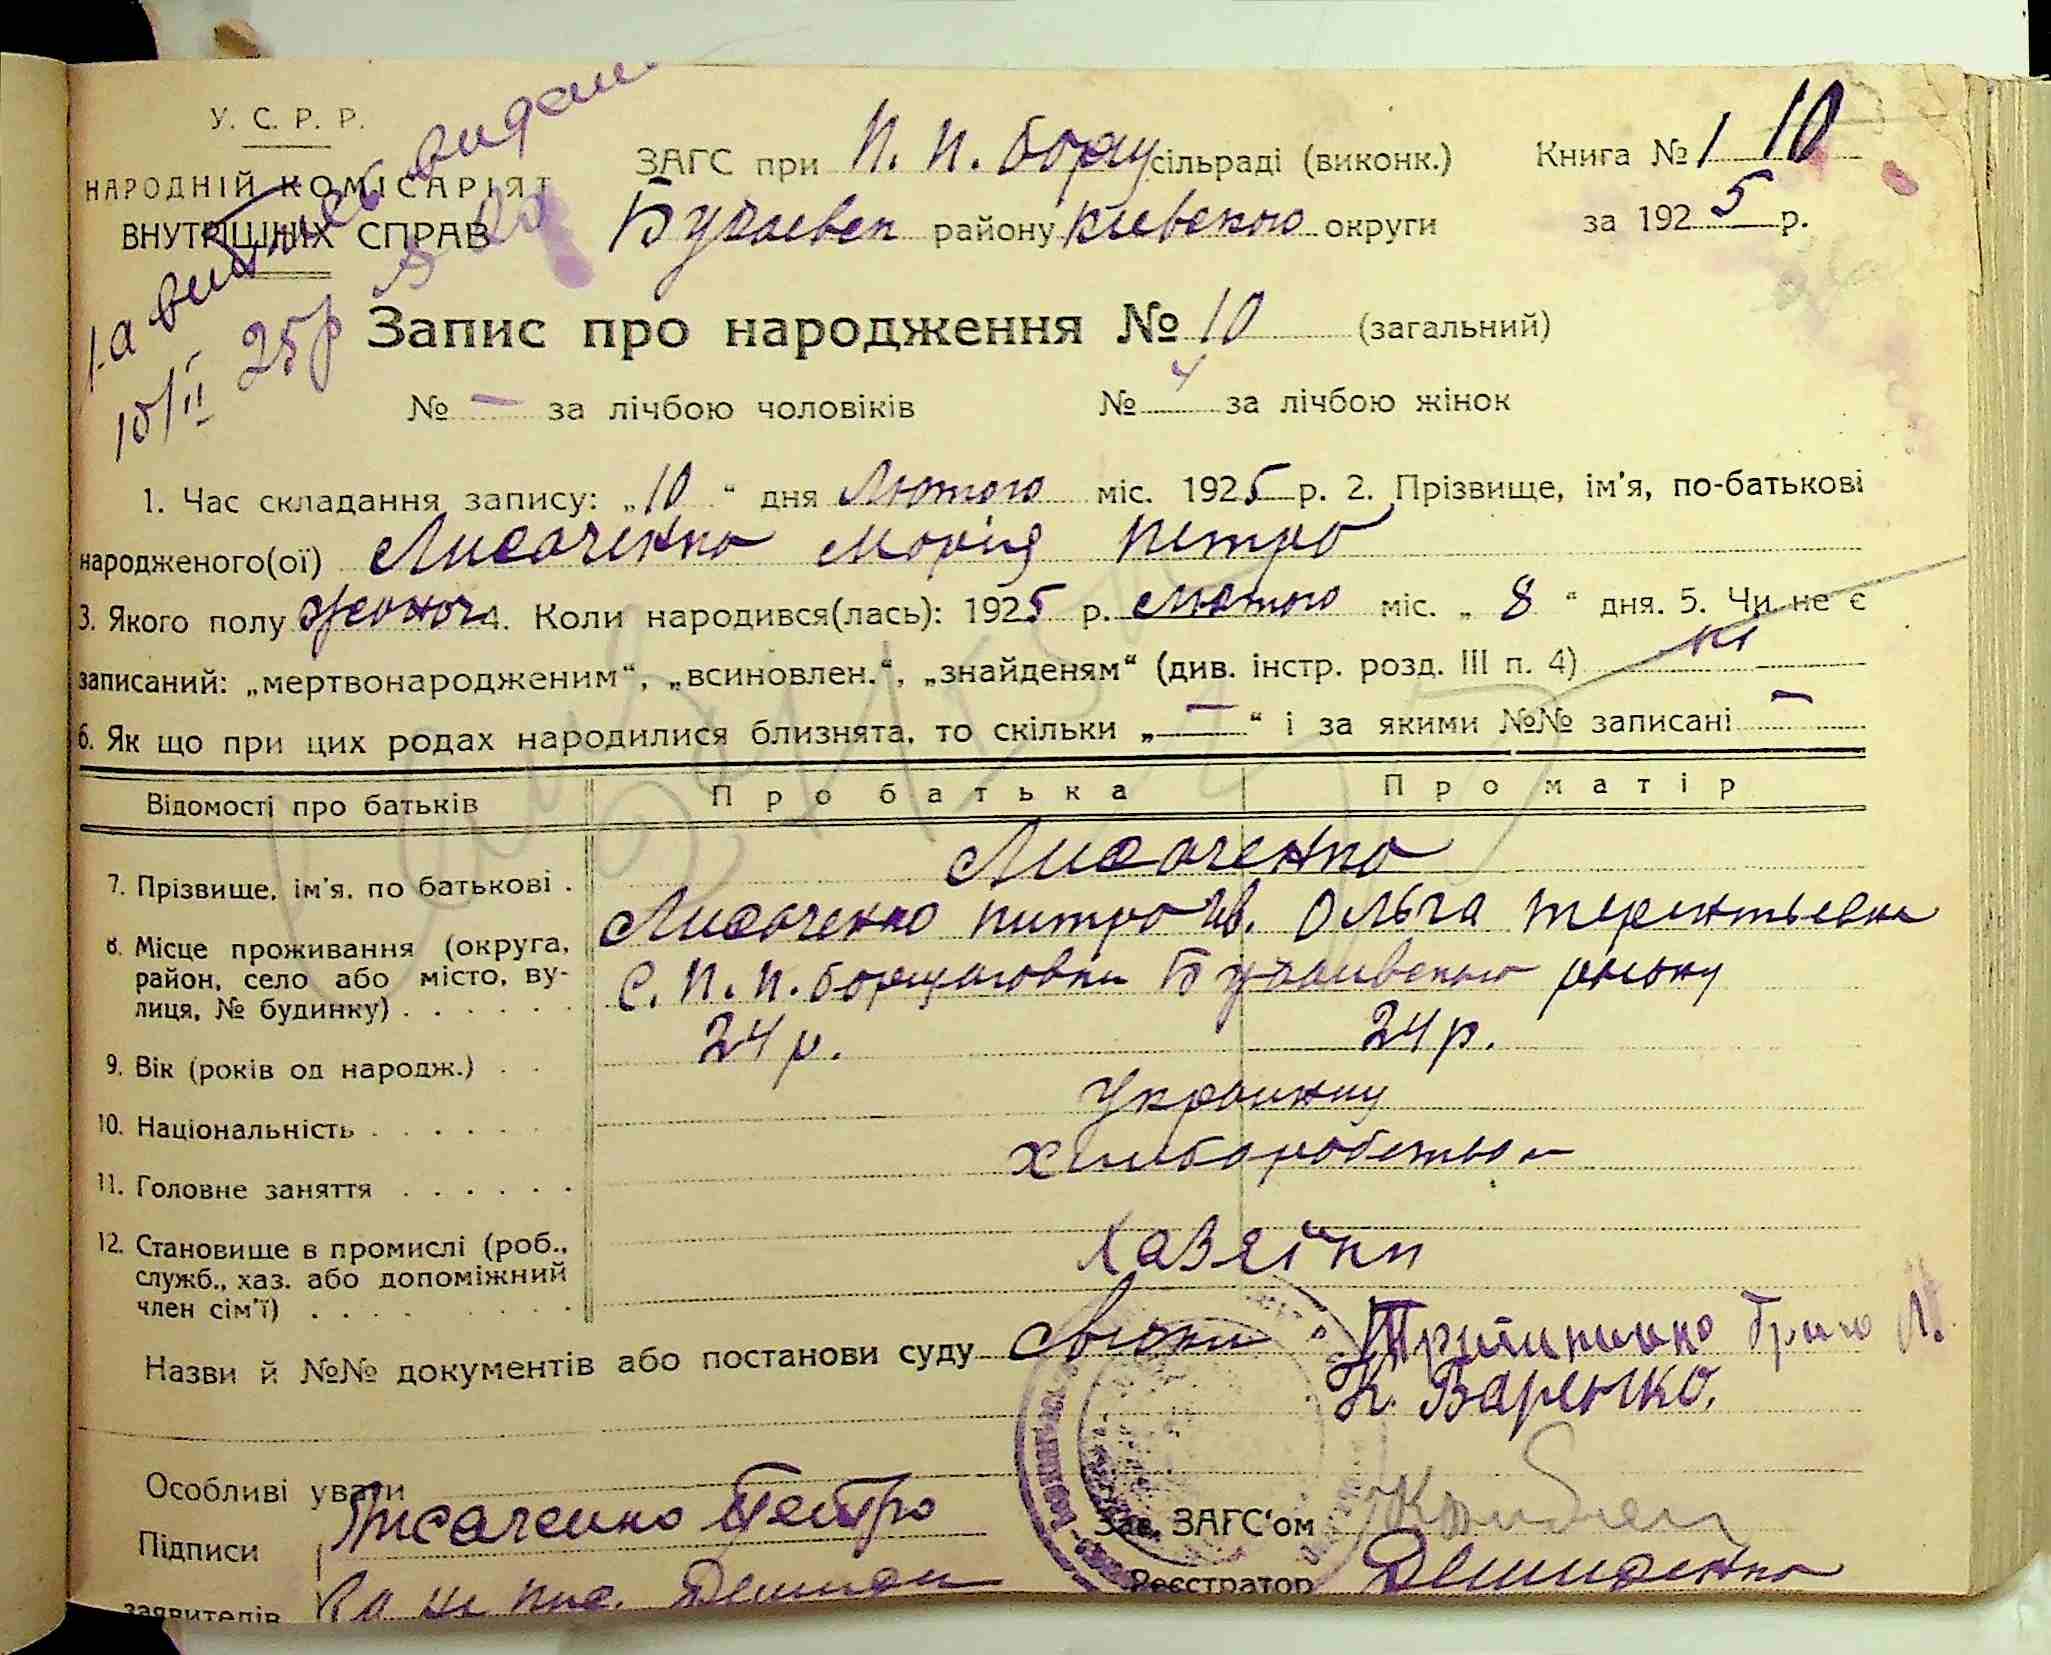 У. С. Р. Р.
НАРОДНІЙ КОМІСАРІЯТ
ВНУТРІШНІХ СПРАВ
ЗАГС при П. П. Борщ сільраді (виконк.)
Книга № 1 10
Бучаевск району Киевскою округи
за 1925 р.
1-а виписъ видан
10/II 25р
Запис про народження № 10 (загальний)
№ — за лічбою чоловіків № 4 за лічбою жінок
1. Час складання запису: „10“ дня Лютого міс. 1925 р. 2. Прізвище, ім'я, по-батькові
народженого(ої) Лисаченко Марія Петро
3. Якого полу жоноч 4. Коли народився(лась): 1925 р. Лютого міс. „8“ дня. 5. Чи не є
записаний: „мертвонародженим“, „всиновлен.“, „знайденям“ (див. інстр. розд. III п. 4) ні
6. Як що при цих родах народилися близнята, то скільки „—“ і за якими №№ записані —
Відомості про батьків Про батька Про матір
7. Прізвище, ім'я, по батькові . Лисаченко
Лисаченко Питро Ів. Ольга Терентьевна
8. Місце проживання (округа,
район, село або місто, ву-
лиця, № будинку) . . . . . .
С. П. П. Борщаговки Бучаивською району
9. Вік (років од народж.) . . 24 р. 24 р.
10. Національність . . . . . . Украинці
11. Головне заняття . . . . . . Хлиборобство
12. Становище в промислі (роб.,
служб., хаз. або допоміжний
член сім'ї) . . . . . . . .
Хазяїни
Назви й №№ документів або постанови суду Свідки:
К. Варенко.
Особливі уваги
Підписи Лисаченко Петро
Зав. ЗАГС'ом
заявителів За не пис. Демиден
Реєстратор Демиденко